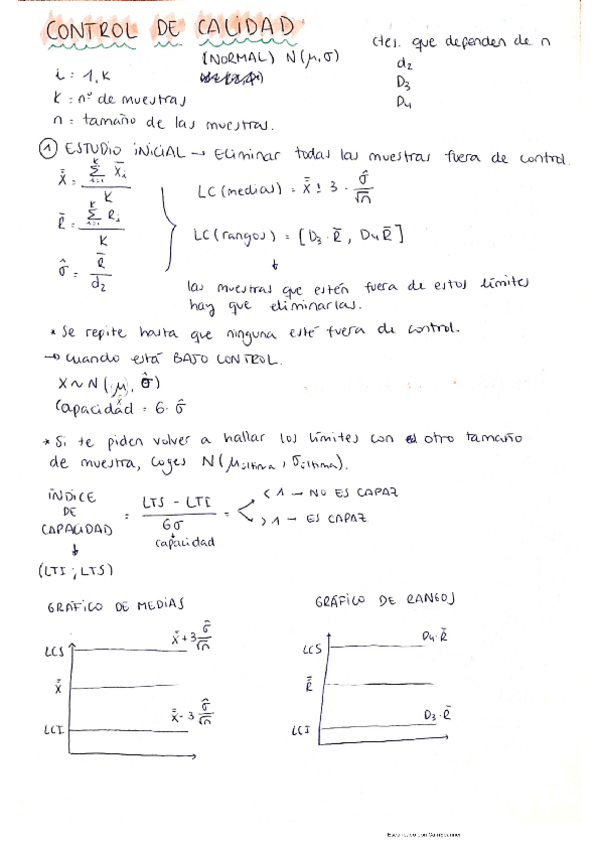 CONTROL DE CALIDAD
(NORMAL) N(μ,σ)
ctes. que dependen de n
d₂
D₃
D₄
i : 1,K
K : nº de muestras
n = tamaño de las muestras.
① ESTUDIO INICIAL → Eliminar todas las muestras fuera de control.
X̿ = Σ X̄i / K
R̄ = Σ Ri / K
σ̂ = R̄ / d₂
LC (medias) = X̿ ± 3 · σ̂/√n
LC (rangos) = [D₃ · R̄, D₄ R̄]
↓
las muestras que estén fuera de estos límites
hay que eliminarlas.
* Se repite hasta que ninguna esté fuera de control.
→ Cuando está BAJO CONTROL.
X ~ N(μ, σ̂)
Capacidad = 6 · σ̂
* Si te piden volver a hallar los límites con otro tamaño
de muestra, coges N(μúltima, σúltima).
ÍNDICE DE CAPACIDAD = LTS - LTI / 6σ = < 1 → NO ES CAPAZ
> 1 → ES CAPAZ
capacidad
↓
(LTI ; LTS)
GRÁFICO DE MEDIAS
LCS
X̿ + 3 σ̂/√n
X̿
LCI
X̿ - 3 σ̂/√n
GRÁFICO DE RANGOS
LCS
D₄ · R̄
R̄
LCI
D₃ · R̄